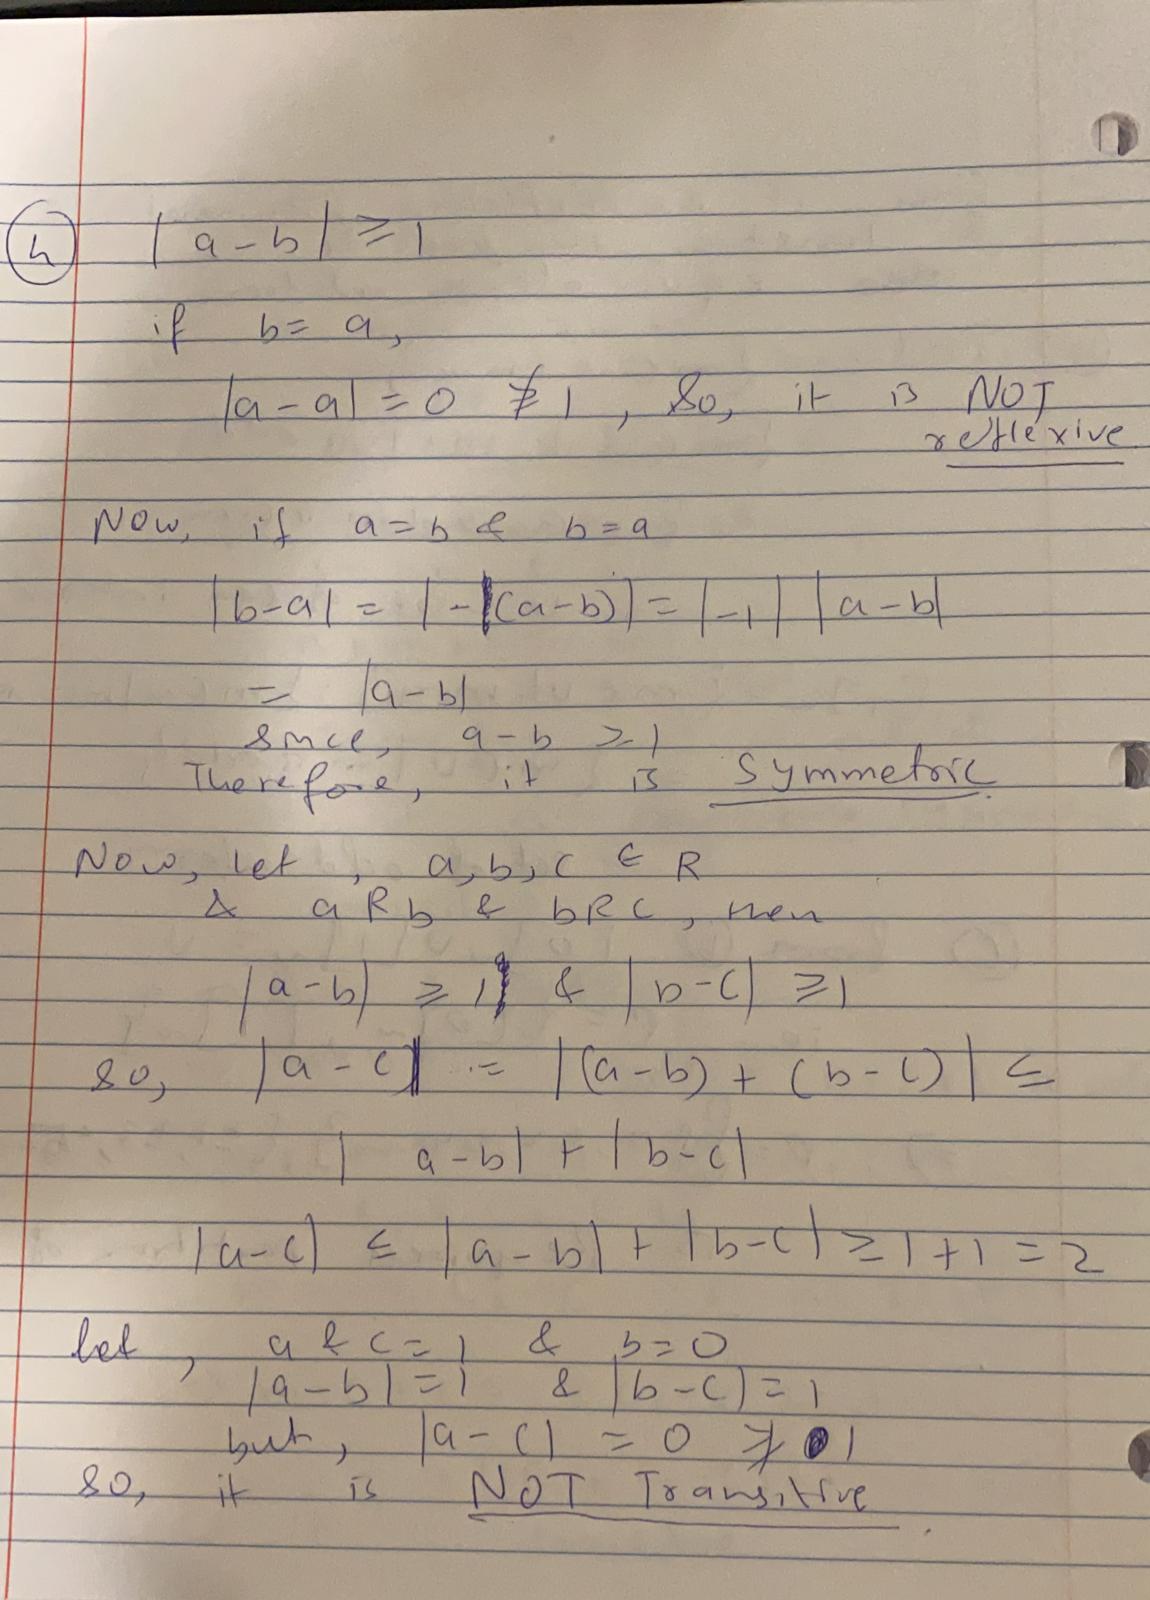 h |a-b| ≥ 1
if b = a,
|a-a| = 0 ≱ 1, So, it is NOT
reflexive
Now, if a=b & b=a
|b-a| = |-(a-b)| = |-1| |a-b|
= |a-b|
since, a-b ≥ 1
Therefore, it is Symmetric.
Now, let, a, b, c ∈ R
& a R b & b R c, then
|a-b| ≥ 1 & |b-c| ≥ 1
so, |a-c| = |(a-b) + (b-c)| ≤
|a-b| + |b-c|
|a-c| ≤ |a-b| + |b-c| ≥ 1+1 = 2
let, a & c = 1 & b = 0
|a-b| = 1 & |b-c| = 1
but, |a-c| = 0 ≱ 1
so, it is NOT Transitive.